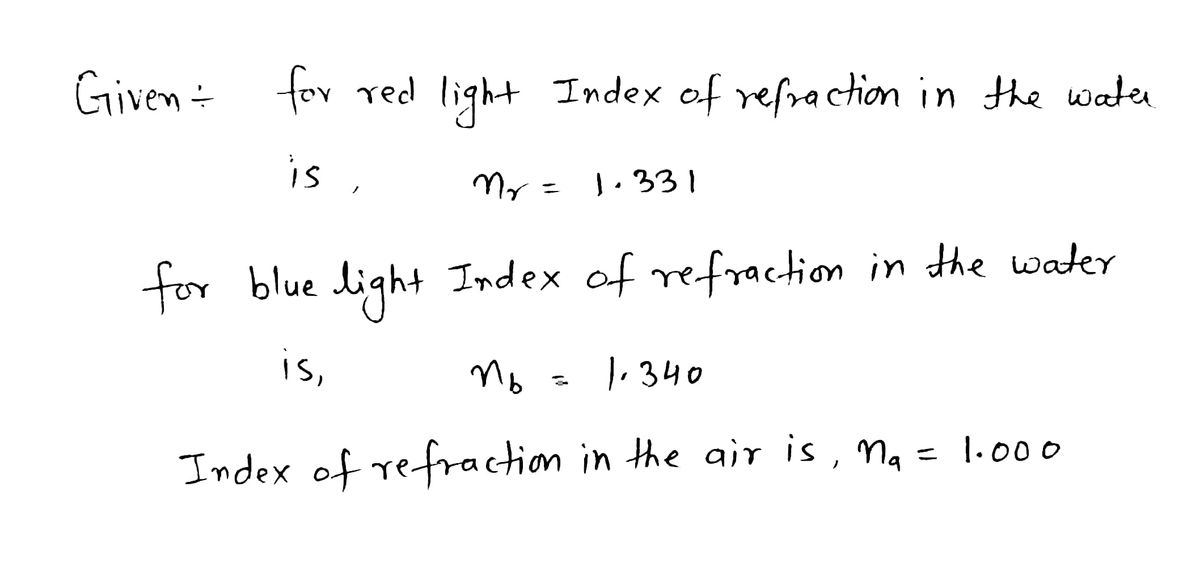 Given ÷ for red light Index of refraction in the water
is, nr = 1.331
for blue light Index of refraction in the water
is, nb = 1.340
Index of refraction in the air is, na = 1.000